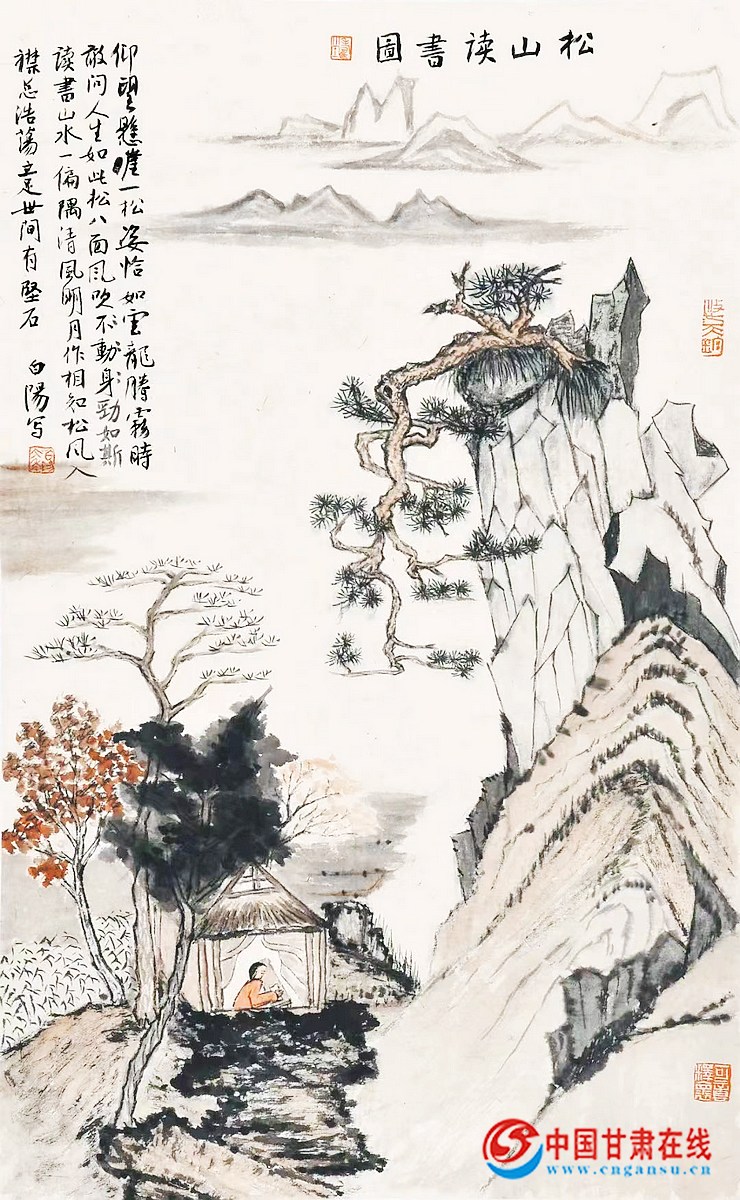 松山读書圖
仰望懸崖一松姿恰如雲龍騰霧時
敢问人生如此松八面风吹不動身勁如斯
读書山水一偏隅清风明月作相知松风入
襟总浩蕩世间有堅石 白陽写
中国甘肃在线
www.cngansu.cn